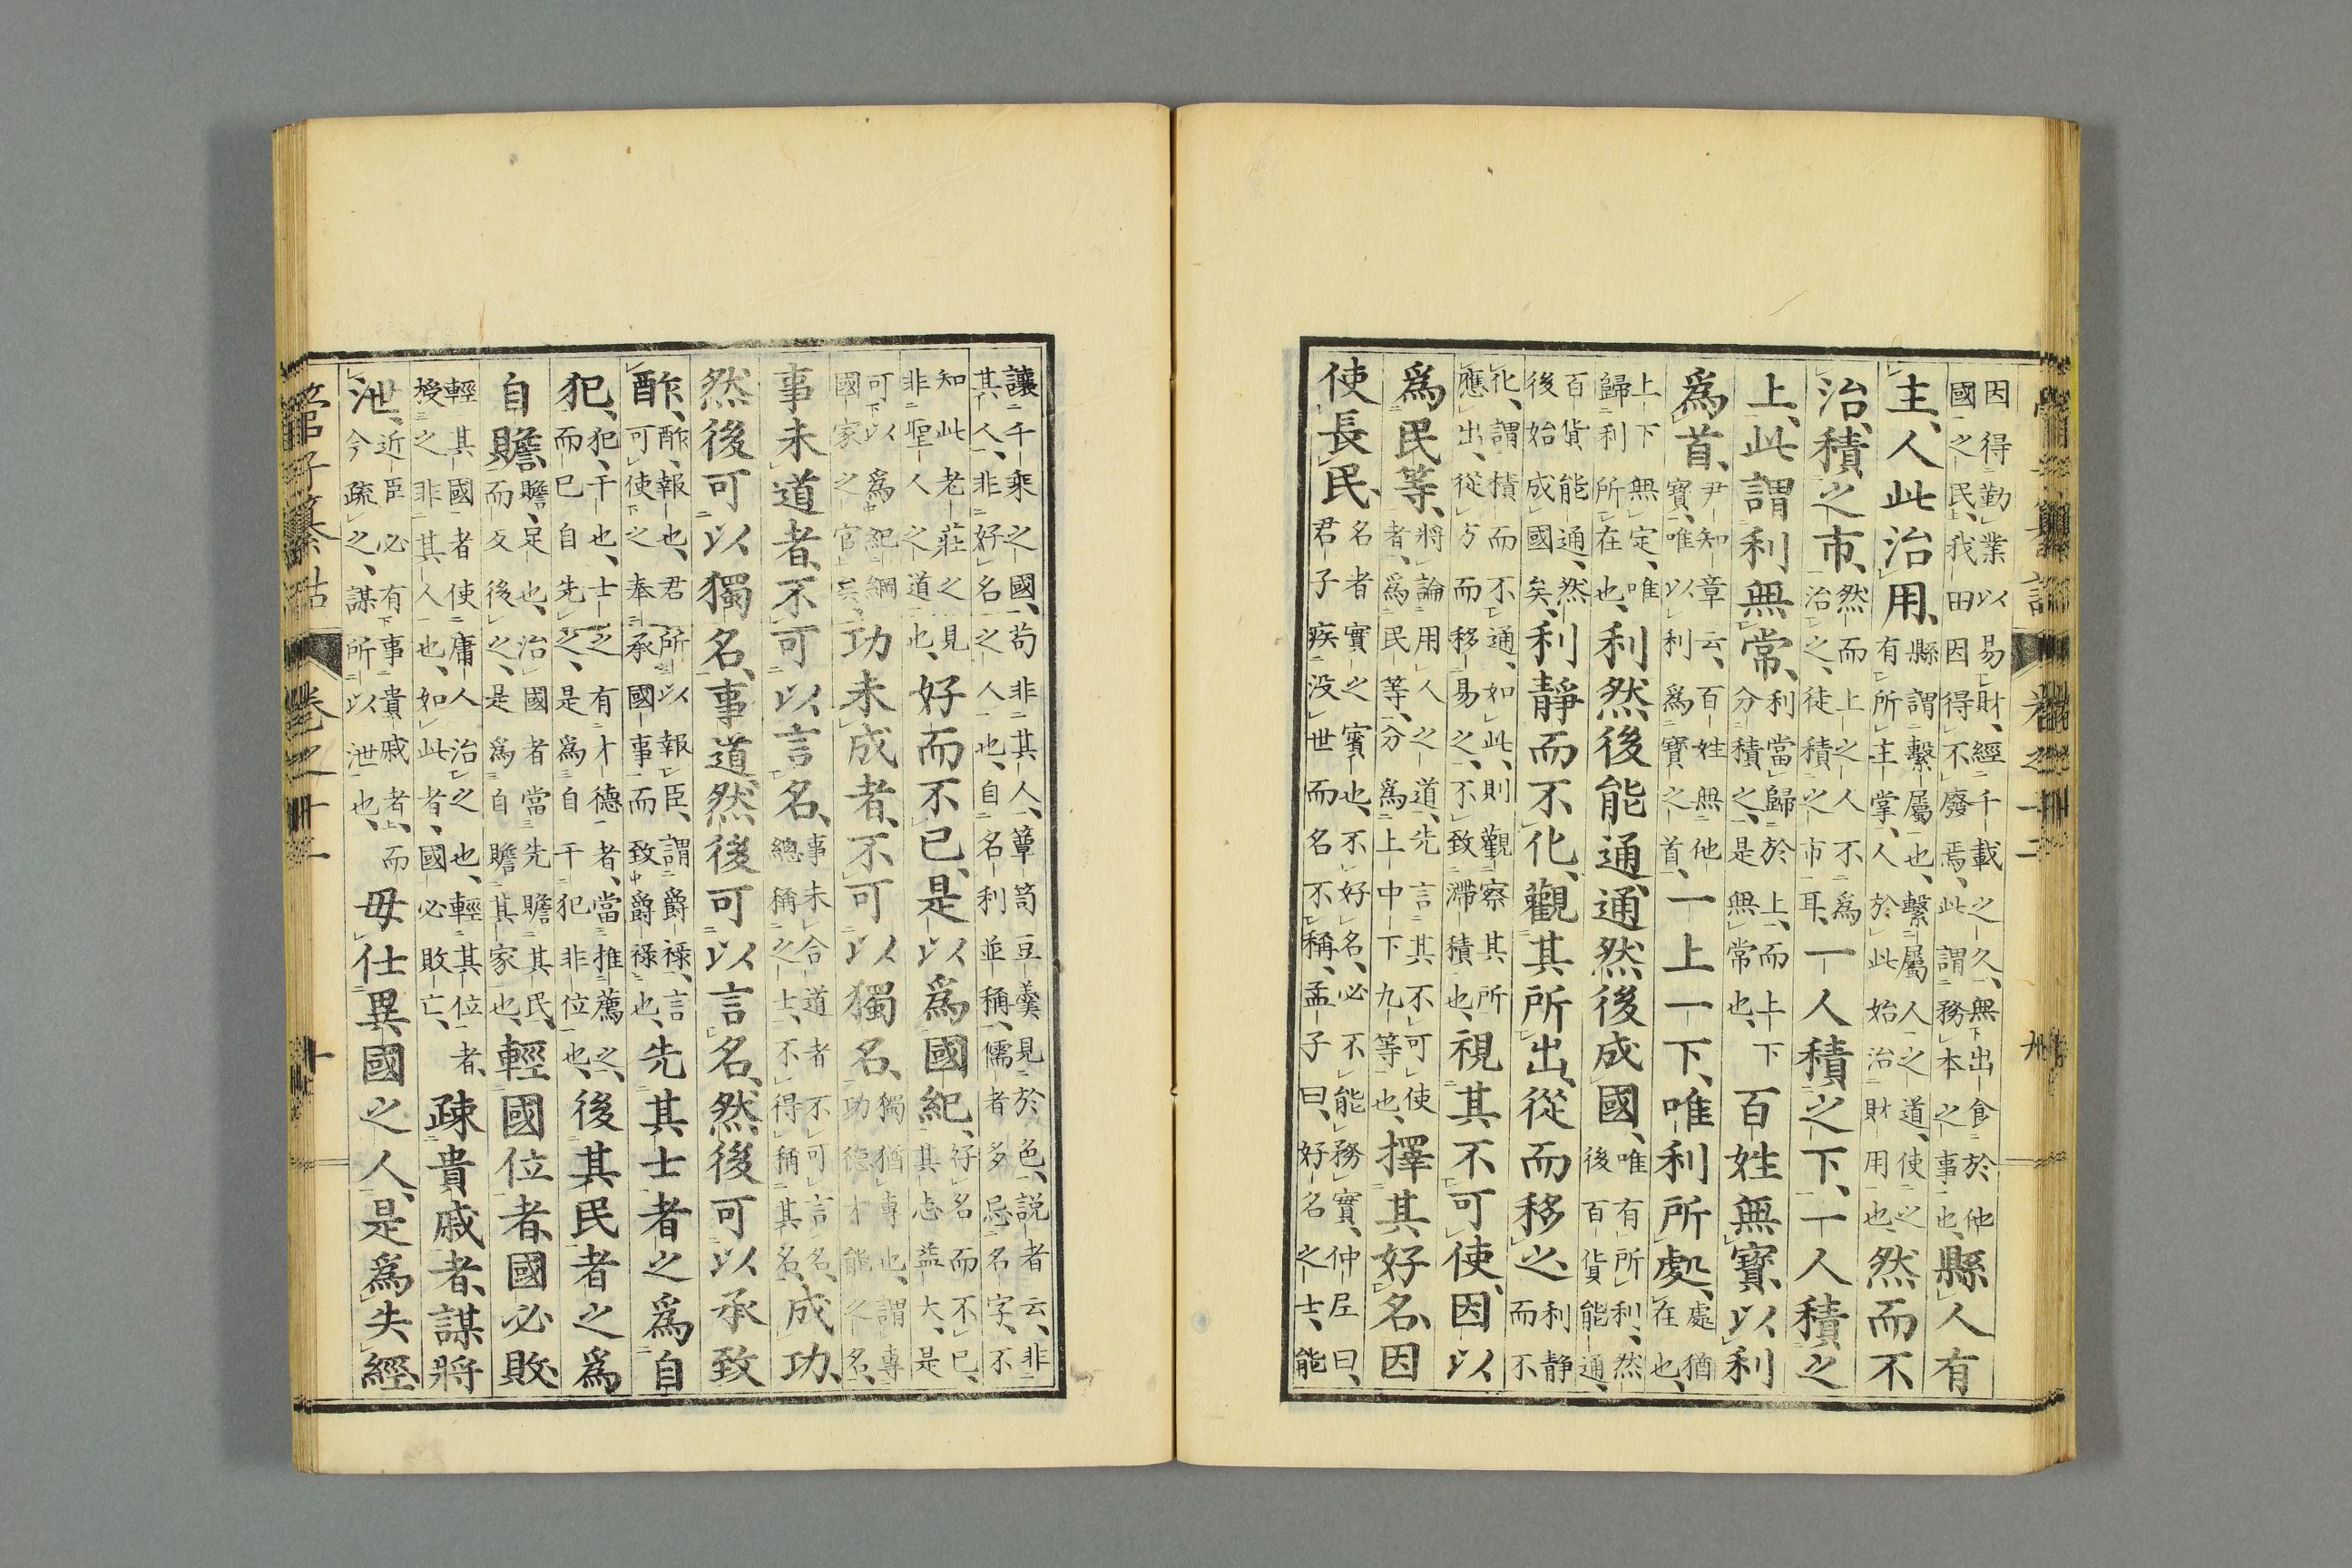 因得勤業以易財、經千載之久、無出食於他
國之民、我田因得不廢焉、此謂務本之事也、縣人有
主、人此治用、縣謂繫屬也、繫屬人之道、使之有所主掌、人於此始治財用也、然而不
治、積之市、然而上之人不爲治之、徒積之市耳、一人積之下、一人積之
上、此謂利無常、利當歸於上、而上下分積之、是無常也、百姓無寶、以利
爲首、尹知章云、百姓無他寶、唯以利爲寶之首、一上一下、唯利所處、處猶在也、
上下無定、唯歸利所在也、利然後能通、通然後成國、唯有所利、然後百貨能通、
百貨能通、然後始成國矣、利靜而不化、觀其所出、從而移之、利靜而不
化、謂積而不通、如此、則觀察其所應出、從方而移易之、不致滯積也、視其不可使、因以
爲民等、將論用人之道、先言其不可使者、爲民等、分爲上中下九等也、擇其好名、因
使長民、名者實之賓也、不好名、必不能務實、仲尼曰、君子疾没世而名不稱、孟子曰、好名之士、能
讓千乘之國、苟非其人、簞笥豆羹見於色、説者云、非其人、非好名之人也、自名利並稱、儒者多忌名字、不
知此老莊之見非聖人之道也、好而不已、是以爲國紀、好名而不已、其志益大、是
可以爲紀綱國家之官矣、功未成者、不可以獨名、獨猶專也、謂專功德才能之名、
事未道者、不可以言名、事未合道者不可言名、總稱之士、不得稱其名、成功、
然後可以獨名、事道、然後可以言名、然後可以承致
酢、酢、報也、君所以報臣、謂爵祿、言可使之奉承國事而致爵祿也、先其士者之爲自
犯、犯、干也、士之有才德者、當推薦之、而已自先之、是爲自干犯非位也、後其民者之爲
自贍、贍、足也、治國者當先贍其民、而反後之、是爲自贍其家也、輕國位者、國必敗、
輕其國者使庸人治之也、輕其位者、授之非其人也、如此者、國必敗亡、疎貴戚者、謀將
泄、近臣必有事貴戚者、而今疏之、謀所以泄也、毋仕異國之人、是爲失經
管子纂詁 卷之十二 十